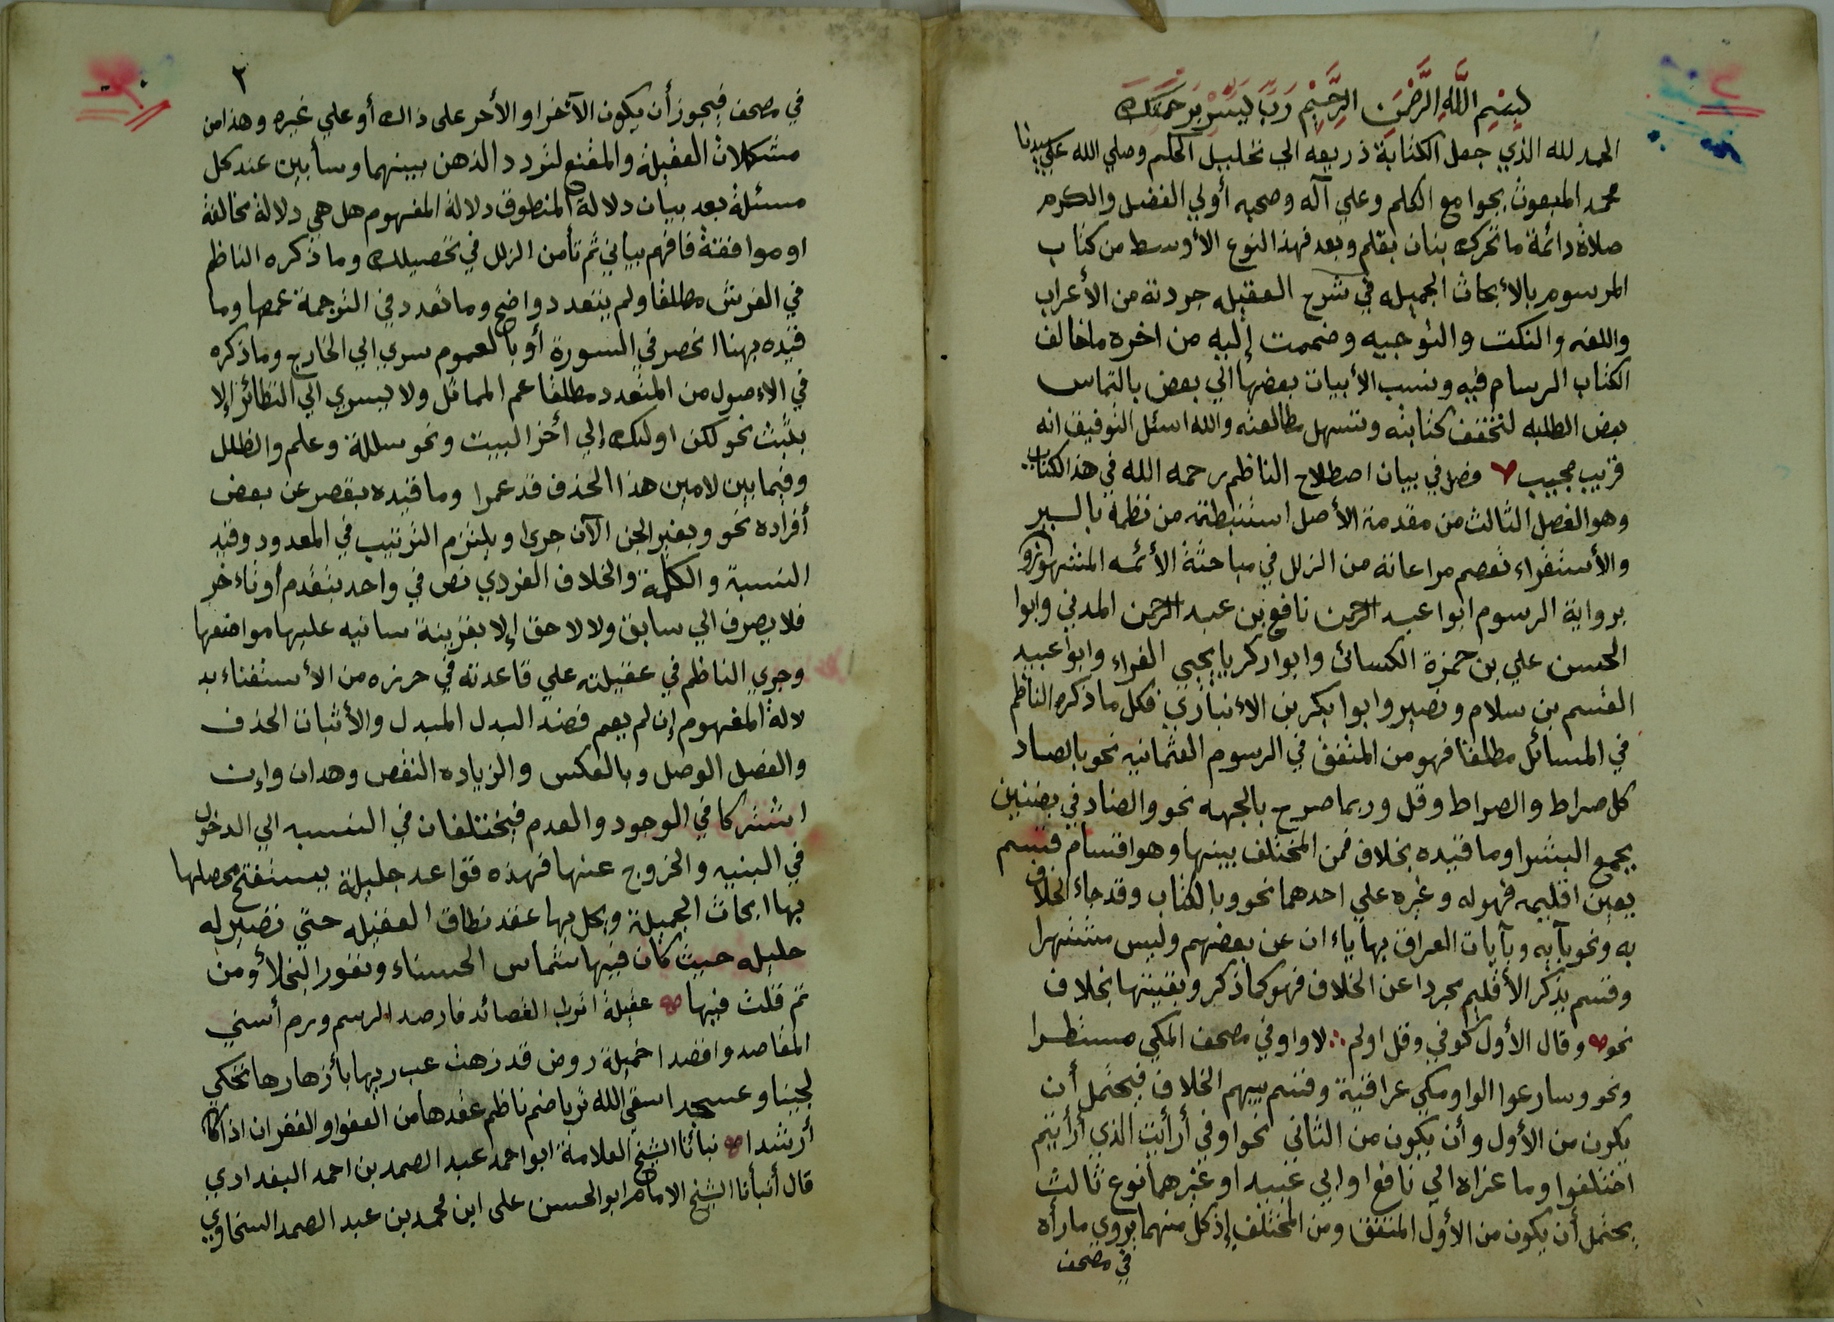 بسم الله الرحمن الرحيم رب يسر برحمتك
الحمد لله الذي جعل الكتابة ذريعه الي تخليل الحكم وصلي الله علي سيدنا
محمد المبعوث بجوامع الكلم وعلي آله وصحبه أولي الفضل والكرم
صلاة دائمة ما تحرك بنان بقلم وبعد فهذا النوع الأوسط من كتاب
المرسوم بالأبحاث الجميله في شرح العقيله جردته من الأعراب
واللغه والنكت والتوجيه وضممت إليه من اخره ما خالف
الكتاب الرسام فيه ونسب الأبيات بعضها الي بعض بالتماس
بعض الطلبه لتخفف كتابته وتتسهل مطالعته والله اسئل التوفيق انه
قريب مجيب فصل في بيان اصطلاح الناظم رحمه الله في هذا الكتاب
وهو الفصل الثالث من مقدمة الأصل استنبطته من نظمه بالسبر
والأستقراء تعصم مراعاته من الزلل في مباحثة الأئمه المشهورون
برواية الرسوم ابوا عبد الرحمن نافع بن عبد الرحمن المدني وابوا
الحسن علي بن حمزة الكسائ وابوا زكريا يحيي الفراء وابوا عبيد
القسم بن سلام ونصير وابوا بكر بن الاءنباري فكل ما ذكره الناظم
في المسائل مطلقا فهو من المتفق في الرسوم العثمانيه نحو بالصاد
كل صراط والصراط وقل وربما صرح بالجهه نحو والضاد في بضنين
بجمع البشرا وما قيده بخلاف فمن المختلف بينها وهو اقسام قسم
يعين اقليمه فهو له وغيره علي احدهما نحو وبا لكتاب وقد جاء الخلاف
به ونحو بآيه وبآيات العراق بها ياءان عن بعضهم وليس مشتهرا
وقسم يذكر الأقليم مجردا عن الخلاف فهو كما ذكر وبقيتها بخلاف
نحو وقال الأول كوفي وقل اولم لا واو في مصحف المكي مستطرا
ونحو وسارعوا الواو مكي عراقية وقسم يبهم الخلاف فيحتمل أن
يكون من الأول وأن يكون من الثاني نحو اوفي أرأيت الذي أرأيتم
اختلفوا وما عزاه الي نافع اوابي عبيد او غيرهما نوع ثالث
يحتمل أن يكون من الأول المتفق ومن المختلف إذ كل منهما يروي ما رأه
في مصحف
٢
في مصحف فيجوز أن يكون الآخر او الأخر علي ذاك أو علي غيره وهذا من
مشكلات العقيلة والمقنع لتردد الذهن بينهما وسأبين عند كل
مسئلة بعد بيان دلالة المنطوق دلالة المفهوم هل هي دلالة مخالفة
او موافقة فافهم بياني ثم تأمن الزلل في تحصيلك وما ذكره الناظم
في الفرش مطلقا ولم يتعدد واضح وما تعدد في الترجمة عمها وما
قيده بهنا انحصر في السورة أو بالعموم سري الي الخارج وما ذكره
في الاءصول من المتعدد مطلقا عم المماثل ولا يسري الي النظائر إلا
بثبت نحو لكن اولئك إلي أخر البيت ونحو سللة وعلم والظلل
وفيما بين لامين هذا الحذف قد عمرا وما قيده بقصر عن بعض
أفراده نحو وبغير الجن الآن جرى ويلتزم الترتيب في المعدود وقيد
النسبة والكلمة والخلاف الفردي نص في واحد بتقدم أو تاءخر
فلا يصرف الي سابق ولا لاحق إلا بقرينة سانبه عليها مواضعها
وجري الناظم في عقيلته علي قاعدته في حرزه من الأستغناء بد
لالة المفهوم إن لم يعم فضد البدل المبدل والأثبات الحذف
والفصل الوصل وبالعكس والزياده النقص وهدان وإن
اشتركا في الوجود والعدم فيختلفان في النسبه الي الدخول
في البنيه والخروج عنها فهذه قواعد جليلة يستفتح محصلها
بها ابحاث الجميلة ويحل بها عقد نطاق العقيله حتي تصير له
حليله حيث كان فيها شماس الحسناء ونفور النجلاء ومن
ثم قلت فيها عقيلة اتراب القصائد فارصد الرسم ورم أسني
المقاصد واقصد اخميلة روض قد زهت عب ريها بأزهارها تحكي
لجينا وعسجد اسقي الله تربا ضم ناظم عقدها من العفو والغفران اذ اكا
أرشدا نبأنا الشيخ العلامة ابوا حمد عبد الصمد بن احمد البغدادي
قال أنبأنا الشيخ الامام ابو الحسن علي ابن محمد بن عبد الصمد السخاوي